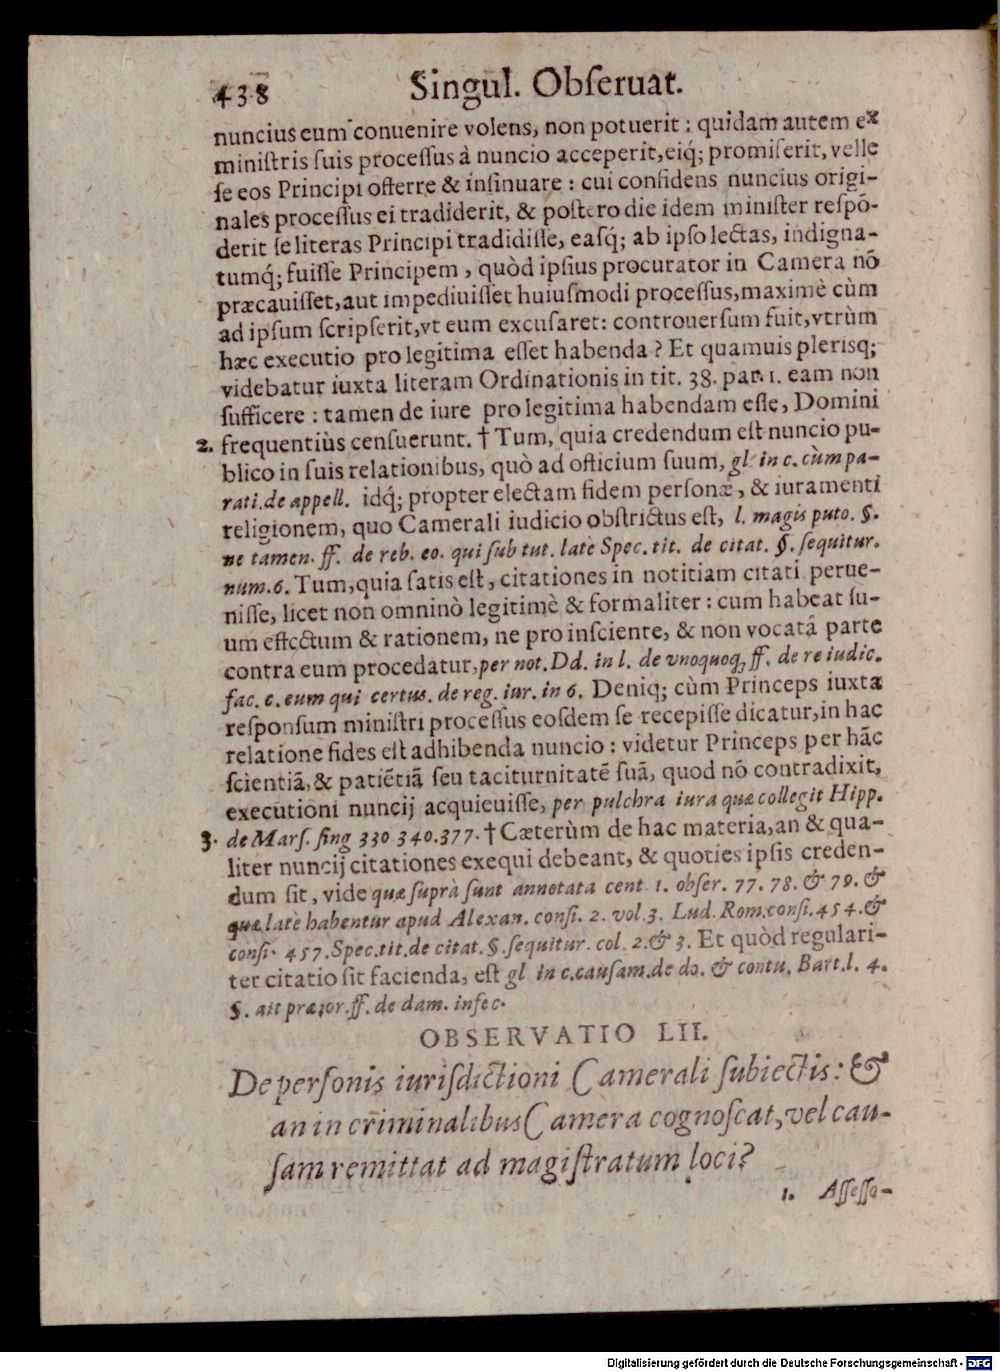 438 Singul. Obſeruat.
nuncius eum conuenire volens, non potuerit ; quidam autem ex
miniſtris ſuis proceſſus à nuncio acceperit,eiq́; promiſerit, velle
ſe eos Principi offerre & inſinuare : cui confidens nuncius origi-
nales proceſſus ei tradiderit, & poſtero die idem miniſter reſpõ-
derit ſe literas Principi tradidiſſe, eaſq́; ab ipſo lectas, indigna-
tumq́; fuiſſe Principem , quòd ipſius procurator in Camera nõ
præcauiſſet,aut impediuiſſet huiuſmodi proceſſus,maximè cùm
ad ipſum ſcripſerit,vt eum excuſaret: controuerſum fuit,vtrùm
hæc executio pro legitima eſſet habenda ? Et quamuis plerisq;
videbatur iuxta literam Ordinationis in tit. 38. par. 1. eam non
ſufficere : tamen de iure pro legitima habendam eſſe, Domini
2. frequentiùs cenſuerunt. † Tum, quia credendum eſt nuncio pu-
blico in ſuis relationibus, quò ad officium ſuum, gl. in c. cùm pa-
rati.de appell. idq́; propter electam fidem perſonæ, & iuramenti
religionem, quo Camerali iudicio obſtrictus eſt, l. magis puto. §.
ne tamen. ff. de reb. eo. qui ſub tut. latè Spec. tit. de citat. §. ſequitur.
num.6. Tum,quia ſatis eſt, citationes in notitiam citati perue-
niſſe, licet non omninò legitimè & formaliter : cum habeat ſu-
um effectum & rationem, ne pro inſciente, & non vocatâ parte
contra eum procedatur,per not.Dd. in l. de vnoquoq; ff. de re iudic.
fac. c. eum qui certus. de reg. iur. in 6. Deniq; cùm Princeps iuxta
reſponſum miniſtri proceſſus eoſdem ſe recepiſſe dicatur,in hac
relatione fides eſt adhibenda nuncio : videtur Princeps per hãc
ſcientiã,& patiẽtiã ſeu taciturnitatẽ ſuã, quod nõ contradixit,
executioni nuncij acquieuiſſe, per pulchra iura quæ collegit Hipp.
3. de Marſ. ſing 330 340.377. † Cæterùm de hac materia,an & qua-
liter nuncij citationes exequi debeant, & quoties ipſis creden-
dum ſit, vide quæ ſuprà ſunt annotata cent. 1. obſer. 77. 78. & 79. &
quæ latè habentur apud Alexan. conſi. 2. vol. 3. Lud. Rom.conſi.454.&
conſi. 457.Spec.tit.de citat. §.ſequitur. col. 2.& 3. Et quòd regulari-
ter citatio ſit facienda, eſt gl in c.cauſam.de do. & contu. Bart.l. 4.
§. ait prætor.ff. de dam. infec.
OBSERVATIO LII.
De perſonis iurisdictioni Camerali ſubiectis: &
an in criminalibus Camera cognoſcat,vel cau-
ſam remittat ad magiſtratum loci?
1. Aſſeſſo-
Digitalisierung gefördert durch die Deutsche Forschungsgemeinschaft - DFG